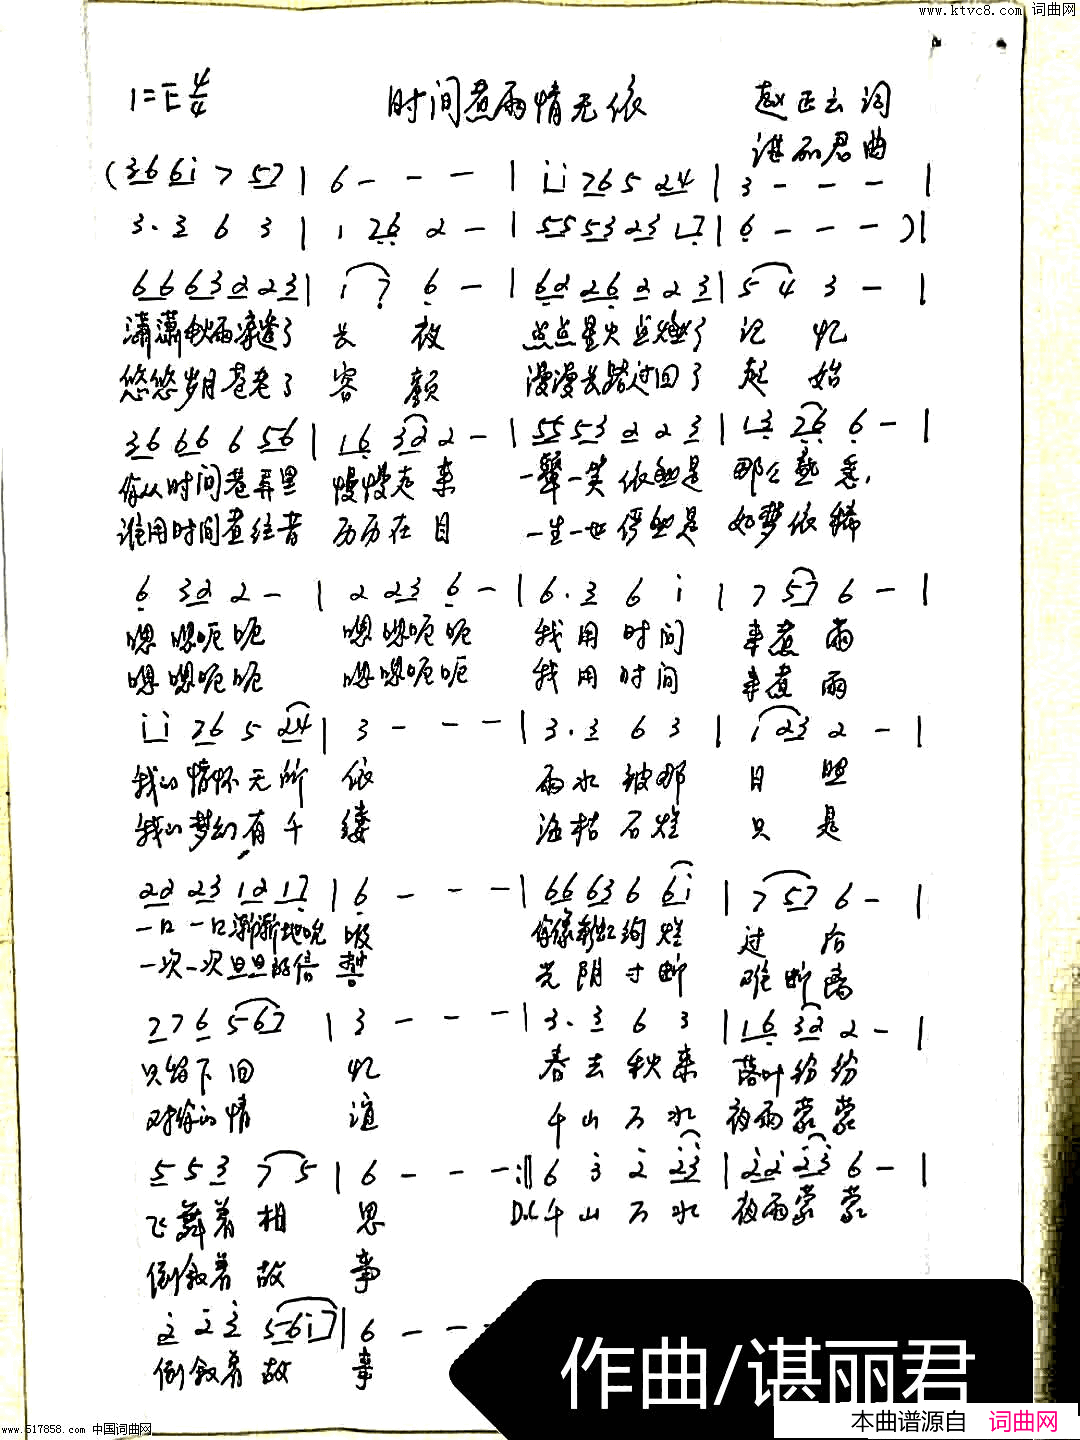 www.ktvc8.com 词曲网
1=E 4/4 时间煮雨情无依 赵正云词
谌丽君曲
(3 6 6 i 7 5 7 | 6 - - - | i i 7 6 5 2 4 | 3 - - - |
3. 3 6 3 | 1 2 6 2 - | 5 5 5 3 2 3 1 7 | 6 - - - )|
6 6 6 3 2 2 3 | i 7 6 - | 6 2 2 6 2 2 3 | 5 4 3 - |
潇潇秋雨 了 长 夜 点点星火点燃了 记 忆
悠悠岁月苍老了 容 颜 漫漫长路过回了 起 始
3 6 6 6 6 5 6 | 1 6 3 2 2 - | 5 5 5 3 2 2 3 | 1 3 7 6 6 - |
你从时间巷弄里 慢慢走来 一颦一笑依然是 那么熟悉,
谁用时间煮往昔 历历在目 一生一世俨然是 如梦依稀
6 3 2 2 - | 2 2 3 6 - | 6. 3 6 i | 7 5 7 6 -|
嗯 嗯呃呃 嗯嗯呃呃 我用时间 来煮雨
嗯 嗯呃呃 嗯嗯呃呃 我用时间 来煮雨
i i 7 6 5 2 4 | 3 - - - | 3. 3 6 3 | 1 2 3 2 - |
我的情怀无所 依 雨水被那 目 照
我的梦幻有千 缕 海枯石烂 只 是
2 2 2 3 1 2 1 7 | 6 - - - | 6 6 6 3 6 6 i | 7 5 7 6 - |
一口一口渐渐地吮 吸 你像彩虹绚烂 过 后
一次一次旦旦的信 誓 光阴寸断 难断离
7 7 6 5 6 7 | 3 - - - | 3. 3 6 3 | 1 6 3 2 2 - |
只留下回 忆 春去秋来 落叶纷纷
对你的情 谊 千山万水 夜雨蒙蒙
5 5 3 7 5 | 6 - - - :|| 6 3 2 2 3 | 2 2 2 3 6 - |
飞舞着相 思 D.C千山万水 夜雨蒙蒙
倒叙着故 事
2 2 3 5 6 i 7 | 6 - - -
倒叙着故 事
作曲/谌丽君
本曲谱源自 词曲网
www.517858.com 中国词曲网